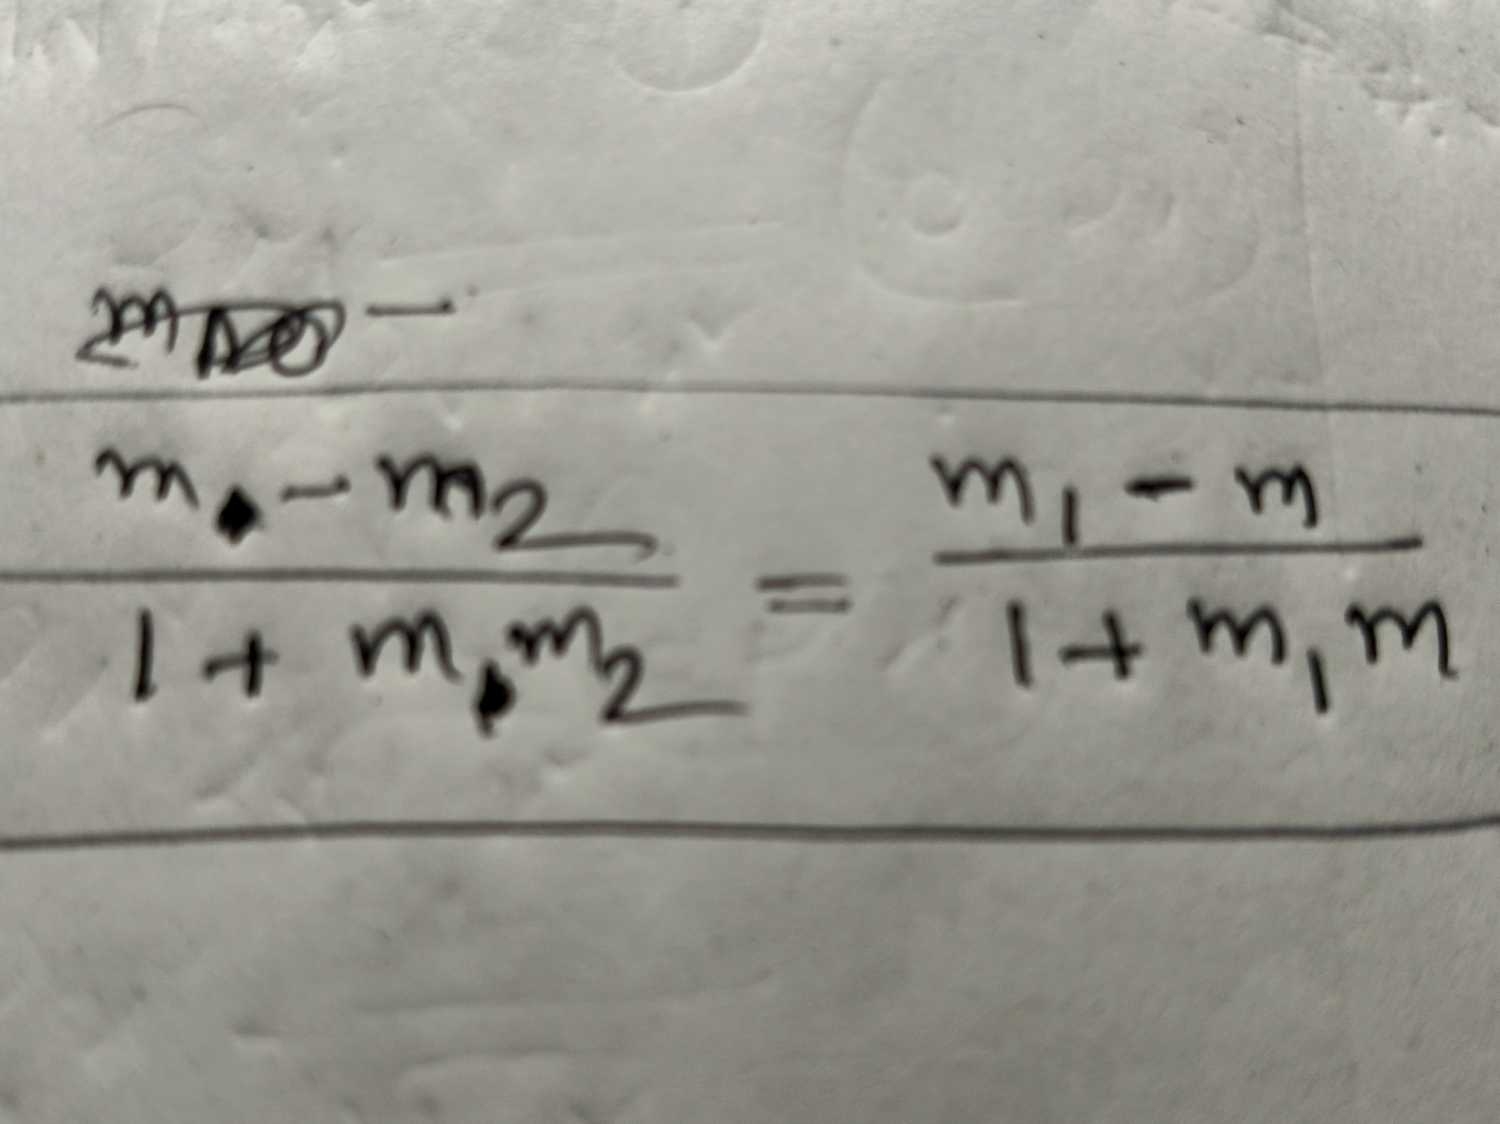 m2 −
m − m₂ / 1 + m m₂ = m₁ − m / 1 + m₁ m